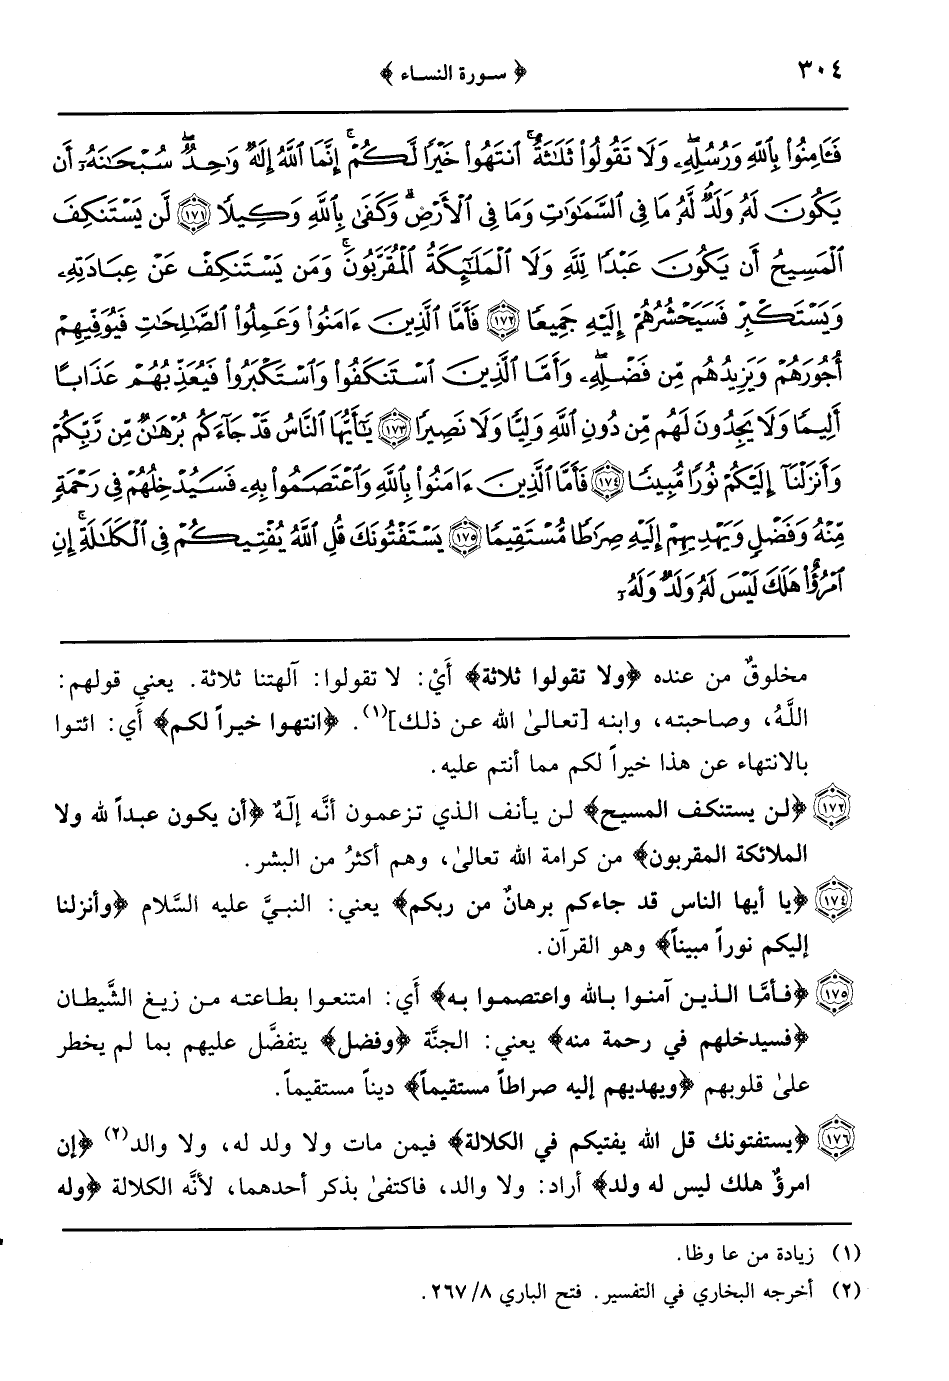 ٣٠٤
﴿ سورة النساء ﴾
فَـَٔامِنُوا۟ بِٱللَّهِ وَرُسُلِهِۦ وَلَا تَقُولُوا۟ ثَلَـٰثَةٌ ٱنتَهُوا۟ خَيْرًا لَّكُمْ إِنَّمَا ٱللَّهُ إِلَـٰهٌ وَٰحِدٌ سُبْحَـٰنَهُۥٓ أَن
يَكُونَ لَهُۥ وَلَدٌ لَّهُۥ مَا فِى ٱلسَّمَـٰوَٰتِ وَمَا فِى ٱلْأَرْضِ وَكَفَىٰ بِٱللَّهِ وَكِيلًا ﴿١٧١﴾ لَّن يَسْتَنكِفَ
ٱلْمَسِيحُ أَن يَكُونَ عَبْدًا لِّلَّهِ وَلَا ٱلْمَلَـٰٓئِكَةُ ٱلْمُقَرَّبُونَ وَمَن يَسْتَنكِفْ عَنْ عِبَادَتِهِۦ
وَيَسْتَكْبِرْ فَسَيَحْشُرُهُمْ إِلَيْهِ جَمِيعًا ﴿١٧٢﴾ فَأَمَّا ٱلَّذِينَ ءَامَنُوا۟ وَعَمِلُوا۟ ٱلصَّـٰلِحَـٰتِ فَيُوَفِّيهِمْ
أُجُورَهُمْ وَيَزِيدُهُم مِّن فَضْلِهِۦ وَأَمَّا ٱلَّذِينَ ٱسْتَنكَفُوا۟ وَٱسْتَكْبَرُوا۟ فَيُعَذِّبُهُمْ عَذَابًا
أَلِيمًا وَلَا يَجِدُونَ لَهُم مِّن دُونِ ٱللَّهِ وَلِيًّا وَلَا نَصِيرًا ﴿١٧٣﴾ يَـٰٓأَيُّهَا ٱلنَّاسُ قَدْ جَآءَكُم بُرْهَـٰنٌ مِّن رَّبِّكُمْ
وَأَنزَلْنَآ إِلَيْكُمْ نُورًا مُّبِينًا ﴿١٧٤﴾ فَأَمَّا ٱلَّذِينَ ءَامَنُوا۟ بِٱللَّهِ وَٱعْتَصَمُوا۟ بِهِۦ فَسَيُدْخِلُهُمْ فِى رَحْمَةٍ
مِّنْهُ وَفَضْلٍ وَيَهْدِيهِمْ إِلَيْهِ صِرَٰطًا مُّسْتَقِيمًا ﴿١٧٥﴾ يَسْتَفْتُونَكَ قُلِ ٱللَّهُ يُفْتِيكُمْ فِى ٱلْكَلَـٰلَةِ إِنِ
ٱمْرُؤٌا۟ هَلَكَ لَيْسَ لَهُۥ وَلَدٌ وَلَهُۥٓ
مخلوقٌ من عنده ﴿ولا تقولوا ثلاثة﴾ أَيْ: لا تقولوا: آلهتنا ثلاثة. يعني قولهم:
اللَّهُ، وصاحبته، وابنه [تعالىٰ الله عن ذلك](١). ﴿انتهوا خيراً لكم﴾ أَي: ائتوا
بالانتهاء عن هذا خيراً لكم مما أنتم عليه.
﴿١٧٢﴾ ﴿لن يستنكف المسيح﴾ لن يأنف الذي تزعمون أنَّه إلَهٌ ﴿أن يكون عبداً لله ولا
الملائكة المقربون﴾ من كرامة الله تعالىٰ، وهم أكثرُ من البشر.
﴿١٧٤﴾ ﴿يا أيها الناس قد جاءكم برهانٌ من ربكم﴾ يعني: النبيَّ عليه السَّلام ﴿وأنزلنا
إليكم نوراً مبيناً﴾ وهو القرآن.
﴿١٧٥﴾ ﴿فأمَّا الذين آمنوا بالله واعتصموا به﴾ أَي: امتنعوا بطاعته من زيغ الشَّيطان
﴿فسيدخلهم في رحمة منه﴾ يعني: الجنَّة ﴿وفضل﴾ يتفضَّل عليهم بما لم يخطر
علىٰ قلوبهم ﴿ويهديهم إليه صراطاً مستقيماً﴾ ديناً مستقيماً.
﴿١٧٦﴾ ﴿يستفتونك قل الله يفتيكم في الكلالة﴾ فيمن مات ولا ولد له، ولا والد(٢) ﴿إن
امرؤٌ هلك ليس له ولد﴾ أراد: ولا والد، فاكتفىٰ بذكر أحدهما، لأنَّه الكلالة ﴿وله
(١) زيادة من عا وظا.
(٢) أخرجه البخاري في التفسير. فتح الباري ٨/ ٢٦٧.